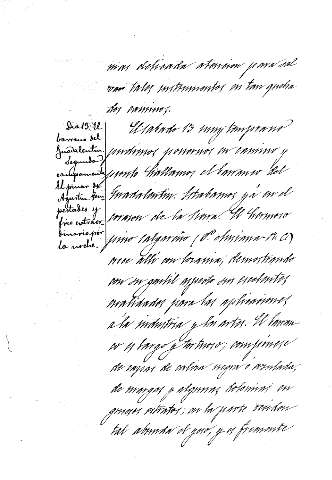 mas delicada atencion para sal
var tales instrumentos en tan queba
dos caminos.
Dia 13. El
barranco del
Guadalentin.
Segundo
campamento
El pinar de
Agustin. Tem
pestades y
frio extraor
dinario por
la noche.
El sabado 13 muy temprano
pudimos ponernos en camino y
pronto hallamos el barranco del
Guadalentin. Estabamos yá en el
corazon de la Sierra. El hermoso
pino salgareño (P.
crece alli con lozania, demostrando
con su gentil aspecto sus excelentes
cualidades para las aplicaciones
á la industria y las artes. El barran
co es largo y tortuoso; componese
de capas de caliza negra ó
de margas y algunas dolomias en
gruesos estratos; en la parte occiden
tal abunda el yeso, y es frecuente